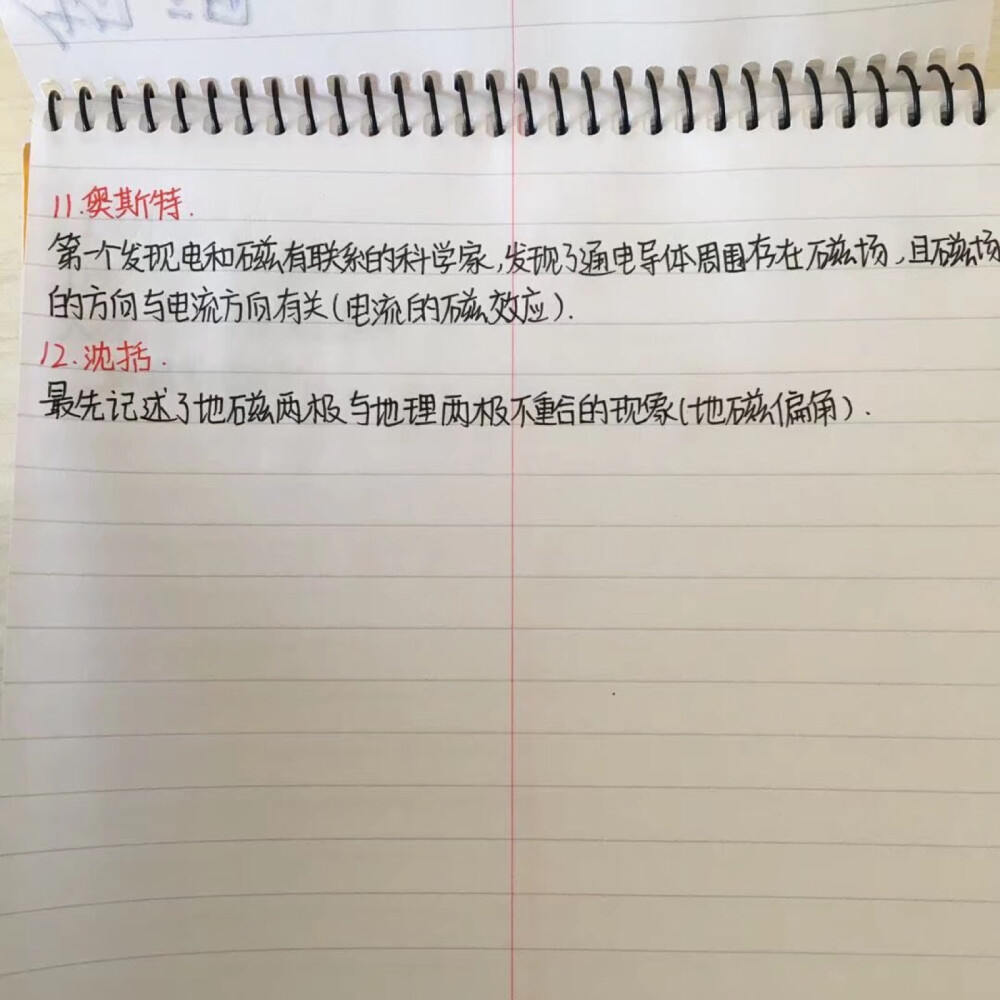 11.奥斯特.
第一个发现电和磁有联系的科学家,发现了通电导体周围存在磁场,且磁场
的方向与电流方向有关(电流的磁效应).
12.沈括.
最先记述了地磁两极与地理两极不重合的现象(地磁偏角).